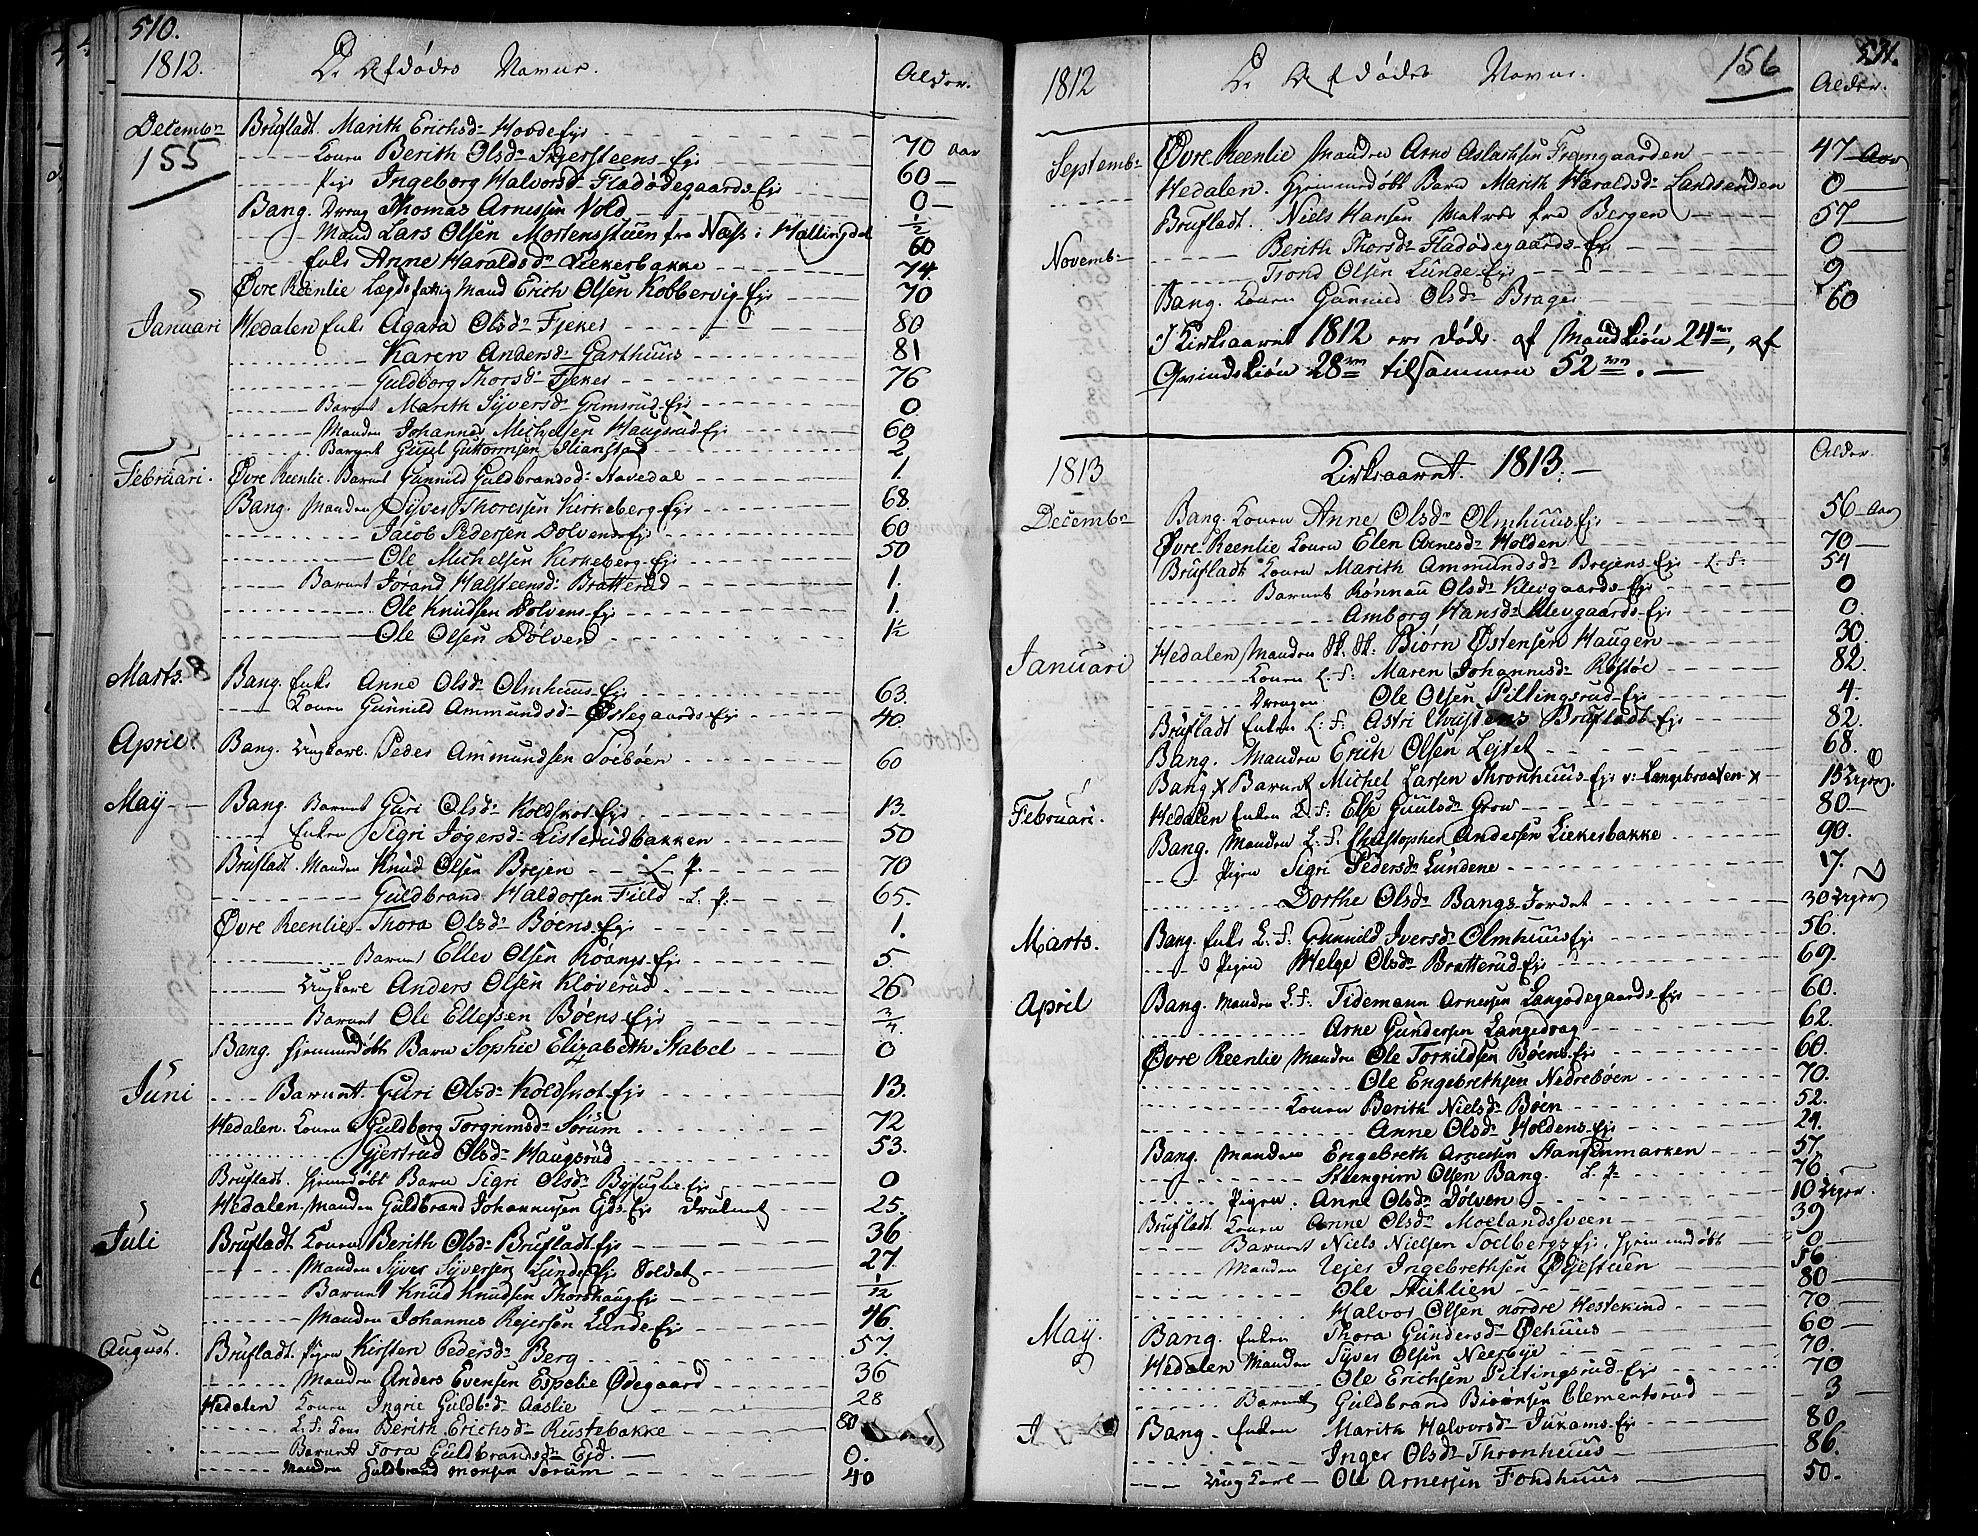 510.
1812. De Afdødes Navne. Alder.
Decembr Brufladt. Marith Erichsdr Hovde Eje
155 Konen Berith Olsdr Eje 70 aar
Pige Ingeborg Halvorsdr Fladødegaards Eje 60
Bang. Dreng Thomas Arnessøn Vold 0
Mand Lars Olsen Mortensstuen fra Næss i Hallingdal 1/2
Enke Anne Haraldsdr Liekerbakke 60
74
Øvre Reenlie Lægdsfattig Mand Erich Olsen Kobbervig Eje 70
Januari Hedalen Enke Agata Olsdr Fjeker 80
Karen Andersdr Garthuus 81
Guldborg Thorsdr Fjeker 76
Barnet Marith Syversdr Grimsrud Eje 0
Manden Johannes Michelsen Haugsrud Eje 60
Barnet Guul Guttormsen Ilianstad 2
Februari. Øvre Reenlie. Barnet Gunnild Guldbrandsdr Havedal 1.
Bang. Manden Syver Thoressen Kirkeberg Eje 68
Jacob Pedersen Dølvens Eje 60
Ole Michelsen Kirkeberg Eje 50
Barnet Jørand Halsteensdr Bratterud 1.
Ole Knudsen Dølvens Eje 1.
Ole Olsen Dølven 1½
Marts. Bang. Enke Anne Olsdr Olmhuus Eje 63
Konen Gunnild Ammundsdr Østegaards Eje 40
April. Bang. Ungkarl Peder Ammundsen Søebøen 60
May Bang. Barnet Guri Olsdr Koldskot Eje 13.
Enken Sigri Jøgersdr Listerudbakken 50
Brufladt. Manden Knud Olsen Brejen L. f. 70
Guldbrand Haldorsen Field L. f. 65.
Øvre Reenlie Thora Olsdr Bøens Eje 1.
Barnet Ellev Olsen Røangs Eje 5
Ungkarl Anders Olsen Kløverud 26
Barnet Ole Ellefsen Bøens Eje 3/4
Bang. hjemmedøbt Barn Sophie Elizabeth Stabel 0
Juni Barnet Guri Olsdr Koldskot Eje 13.
Hedalen. Konen Guldborg Torgrimsdr Sørum 72
Gjertrud Olsdr Haugsrud 53.
Brufladt. hjemmedøbt Barn Sigri Olsdr Byfuglie Eje 0
Hedalen Manden Guldbrand Johannesen Eje 25.
Juli Brufladt Konen Berith Olsdr Brufladt Eje 36
Manden Syver Syversen Lunde Eje Soldat 27
Barnet Knud Knudsen Thorshaug Eje 1/2
Manden Johannes Rejersen Lunde Eje 46.
August. Brufladt. Pigen Kirsten Pedersdr Berg 57.
Manden Anders Evensen Espelie Ødegaard 36
Hedalen Konen Ingrie Guldbdr Aaslie 28
L. f. Berith Erichsdr Rustebakke 80
Barnet Tora Guldbrandsdr Ejd. 0.
Manden Guldbrand Monsen Sørum 40
511.
1812 De Afdødes Navne. 156 Alder.
Septembr Øvre Reenlie Manden Arne Aslachsen Fremgaarden 47 Aar
Hedalen. hjemmedøbt Barn Marith Haraldsdr Landsenden 0
Brufladt. Niels Hansen Matros fra Bergen 57
Novembr Berith Thorsdr Fladødegaards Eje 0
Trond Olsen Lunde Eje 9
Bang. Konen Gunnild Olsdr Brager 60
I Kirkeaaret 1812 ere døde af Mandkiøn 24re, af
Qvindekiøn 28re tilsammen 52re.
1813 Kirkeaaret 1813. Alder.
Decembr Bang. Konen Anne Olsdr Olmhuus Eje 56 Aar
Øvre Reenlie Konen Elen Arnesdr Holden 70
Brufladt Konen Marith Ammundsdr Brejens Eje L. f. 54
Barnet Rønnau Olsdr Klevgaards Eje 0
Amborg Hansdr Klevgaards Eje 0.
Januari Hedalen Manden Sk. Sk. Biørn Østensen Haugen 30.
Konen L. f. Maren Johannesdr Røstøe 82.
Drengen Ole Olsen Piltingsrud Eje 4.
Brufladt Enken L. f. Astri Brufladt Eje 82.
Bang. Manden Erich Olsen Lejtet 68.
Bang x Barnet Michel Larsen Thronhuus Eje v: Langebraaten x 15 Uger.
Februari. Hedalen Enken L. f. Else Guulsdr Grov 80
Bang. Manden L. f. Christopher Andersen Liekerbakke 90.
Pigen Sigri Pedersdr Lundene 17.
Dorthe Olsdr Bangs Jordet 30 Uger
Marts. Bang. Enke L. f. Gunnild Iversdr Olmhuus Eje 56.
Pigen Helge Olsdr Bratterud Eje 69.
April Bang. Manden L. f. Tideman Arnesen Langødegaards Eje 60.
Arne Gundersen Langedrag 62.
Øvre Reenlie Manden Ole Torkildsen Bøens Eje 60.
Ole Engebrethsen Nedrebøen 70.
Konen Berith Nielsdr Bøen 52.
Anne Olsdr Holdens Eje 24.
Bang. Manden Engebreth Arnesen Stansenmarken 57.
Steengrim Olsen Bang. L. f. 76
Pigen. Anne Olsdr Dølven 10 Uger.
Brufladt. Konen Anne Olsdr Moelandssveen 39
Barnet Niels Nielsen Soelbergs Eje. hjemmedøbt 0
Manden Ingebrethsen Øejestuen 56
Ole Stutlien 80
Halvor Olsen nordre Hestekind 70.
May. Bang. Enken Thora Gundersdr Øehuus 60
Hedalen Manden Syver Olsen Neerbye 70.
Ole Erichsen Piltingsrud Eje 70
Barnet Guldbrand Biørnsen Clementsrud 3
J Bang. Enken Marith Halvorsdr Juvams Eje 80
Inger Olsdr Thronhuus 86.
Ung Karl Ole Arnesen Fondhuus 50.